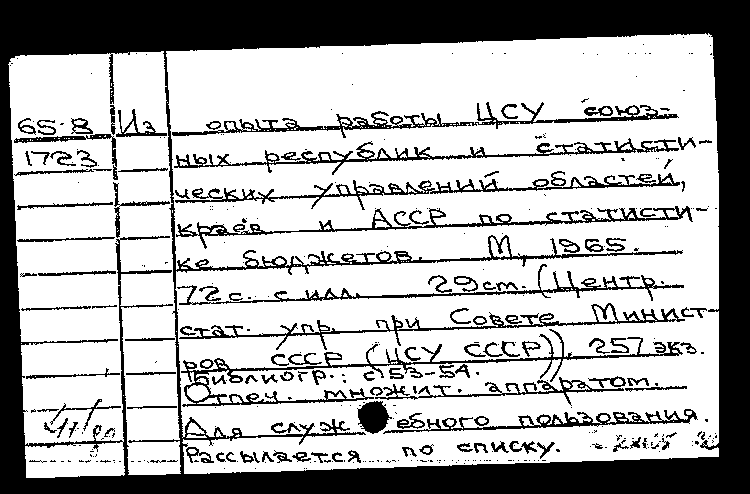 65-8 Из опыта работы ЦСУ союз-
1723 ных республик и статисти-
ческих управлений областей,
краев и АССР по статисти-
ке бюджетов. М, 1965.
72 с. с илл. 29 см. (Центр.
стат. упр. при Совете Минист-
ров СССР (ЦСУ СССР)). 257 экз.
Библиогр.: с 53-54.
Отпеч. множит. аппаратом.
Для служебного пользования.
Рассылается по списку.